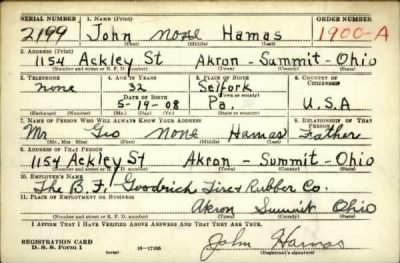 SERIAL NUMBER 1. NAME (Print) ORDER NUMBER
2199 John none Hamas 1900-A
(First) (Middle) (Last)
2. ADDRESS (Print)
1154 Ackley St Akron - Summit - Ohio
(Number and street or R. F. D. number) (Town) (County) (State)
3. TELEPHONE 4. AGE IN YEARS 5. PLACE OF BIRTH 6. COUNTRY OF CITIZENSHIP
none 32 Selfork
DATE OF BIRTH (Town or county)
5-19-08 Pa. U.S.A
(Exchange) (Number) (Mo.) (Day) (Yr.) (State or country)
7. NAME OF PERSON WHO WILL ALWAYS KNOW YOUR ADDRESS 8. RELATIONSHIP OF THAT PERSON
Mr Geo None Hamas Father
(Mr., Mrs., Miss) (First) (Middle) (Last)
9. ADDRESS OF THAT PERSON
1154 Ackley St Akron - Summit - Ohio
(Number and street or R. F. D. number) (Town) (County) (State)
10. EMPLOYER'S NAME
The B.F. Goodrich Tire & Rubber Co.
11. PLACE OF EMPLOYMENT OR BUSINESS
Akron Summit Ohio
(Number and street or R. F. D. number) (Town) (County) (State)
I AFFIRM THAT I HAVE VERIFIED ABOVE ANSWERS AND THAT THEY ARE TRUE.
REGISTRATION CARD
D. S. S. Form 1 16-17105 John Hamas
(Registrant's signature)